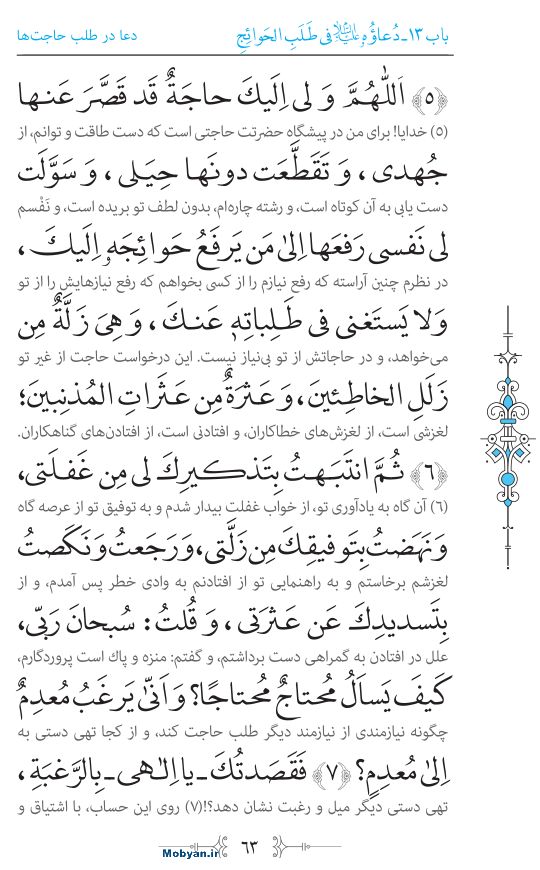 باب ۱۳ـ دُعاؤُهُ عليه‌السلام فی طَلَبِ الحَوائِجِ
دعا در طلب حاجت‌ها
﴿۵﴾ اَللّٰهُمَّ وَ لی اِلَیكَ حاجَةٌ قَد قَصَّرَ عَنها
(۵) خدایا! برای من در پیشگاه حضرتت حاجتی است که دست طاقت و توانم، از
جُهدی ، وَ تَقَطَّعَت دونَها حِیَلی ، وَ سَوَّلَت
دست یابی به آن کوتاه است، و رشته چاره‌ام، بدون لطف تو بریده است، و نَفْسم
لی نَفسی رَفعَها اِلیٰ مَن یَرفَعُ حَوائِجَهٗ اِلَیكَ ،
در نظرم چنین آراسته که رفع نیازم را از کسی بخواهم که رفع نیازهایش را از تو
وَلا یَستَغنی فی طَلِباتِهٖ عَنكَ ، وَ هِیَ زَلَّةٌ مِن
می‌خواهد، و در حاجاتش از تو بی‌نیاز نیست. این درخواست حاجت از غیر تو
زَلَلِ الخاطِئینَ، وَ عَثرَةٌ مِن عَثَراتِ المُذنِبینَ؛
لغزشی است، از لغزش‌های خطاکاران، و افتادنی است، از افتادن‌های گناهکاران.
﴿۶﴾ ثُمَّ انتَبَهتُ بِتَذکیرِكَ لی مِن غَفلَتی،
(۶) آن گاه به یادآوری تو، از خواب غفلت بیدار شدم و به توفیق تو از عرصه گاه
وَ نَهَضتُ بِتَوفیقِكَ مِن زَلَّتی، وَ رَجَعتُ وَ نَکَصتُ
لغزشم برخاستم و به راهنمایی تو از افتادنم به وادی خطر پس آمدم، و از
بِتَسدیدِكَ عَن عَثرَتی ، وَ قُلتُ: سُبحانَ رَبّی،
علل در افتادن به گمراهی دست برداشتم، و گفتم: منزه و پاك است پروردگارم،
کَیفَ یَساَلُ مُحتاجٌ مُحتاجًا؟ وَ اَنّیٰ یَرغَبُ مُعدِمٌ
چگونه نیازمندی از نیازمند دیگر طلب حاجت کند، و از کجا تهی دستی به
اِلیٰ مُعدِمٍ؟ ﴿۷﴾ فَقَصَدتُكَ ـ یا اِلـٰهی ـ بِالرَّغبَةِ ،
تهی دستی دیگر میل و رغبت نشان دهد؟!(۷) روی این حساب، با اشتیاق و
۶۳
Mobyan.ir